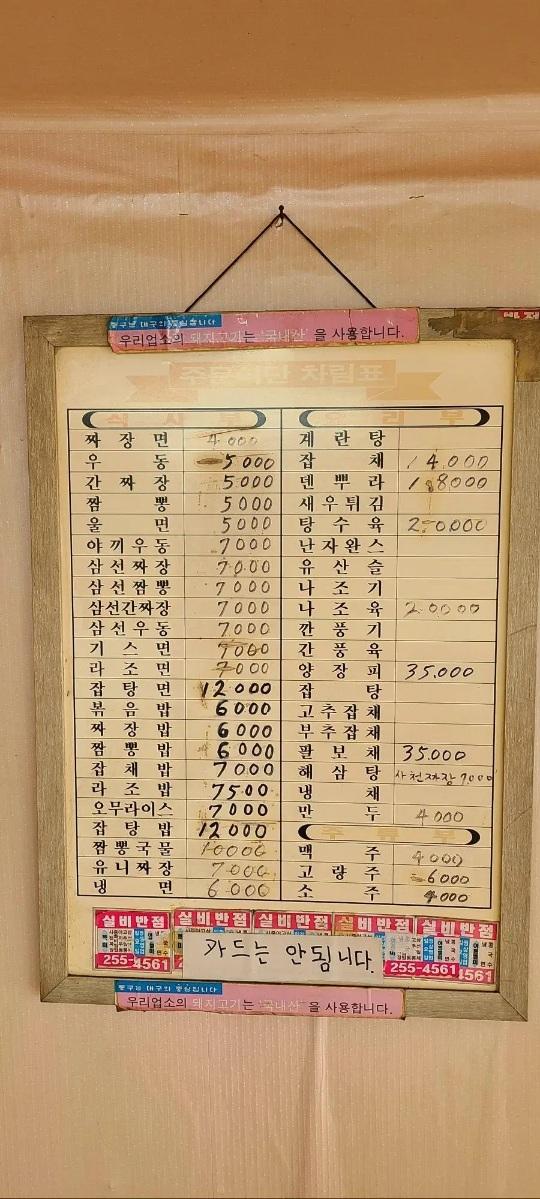 동구는 대구의 중심입니다
우리업소의 돼지고기는 '국내산' 을 사용합니다.
차림표
식 사 부
짜장면 4.000
우동 5000
간짜장 5.000
짬뽕 5000
울면 5000
야끼우동 7000
삼선짜장 7000
삼선짬뽕 7000
삼선간짜장 7000
삼선우동 7.000
기스면 7000
라조면 7000
잡탕면 12000
볶음밥 6000
짜장밥 6000
짬뽕밥 6000
잡채밥 7000
라조밥 7500
오무라이스 7000
잡탕밥 12000
짬뽕국물 10000
유니짜장 7000
냉면 6.000
요 리 부
계란탕
잡채 14.000
덴뿌라 18000
새우튀김
탕수육 20.000
난자완스
유산슬
나조기
나조육 20000
깐풍기
간풍육
양장피 35.000
잡탕
고추잡채
부추잡채
팔보채 35.000
해삼탕 사천짜장 7000
냉채
만두 4000
주 류 부
맥주 4000
고량주 6000
소주 4000
실비반점 실비반점 실비반점 실비반점 실비반점
카드는 안됩니다.
255-4561 255-4561
동구는 대구의 중심입니다
우리업소의 돼지고기는 '국내산' 을 사용합니다.